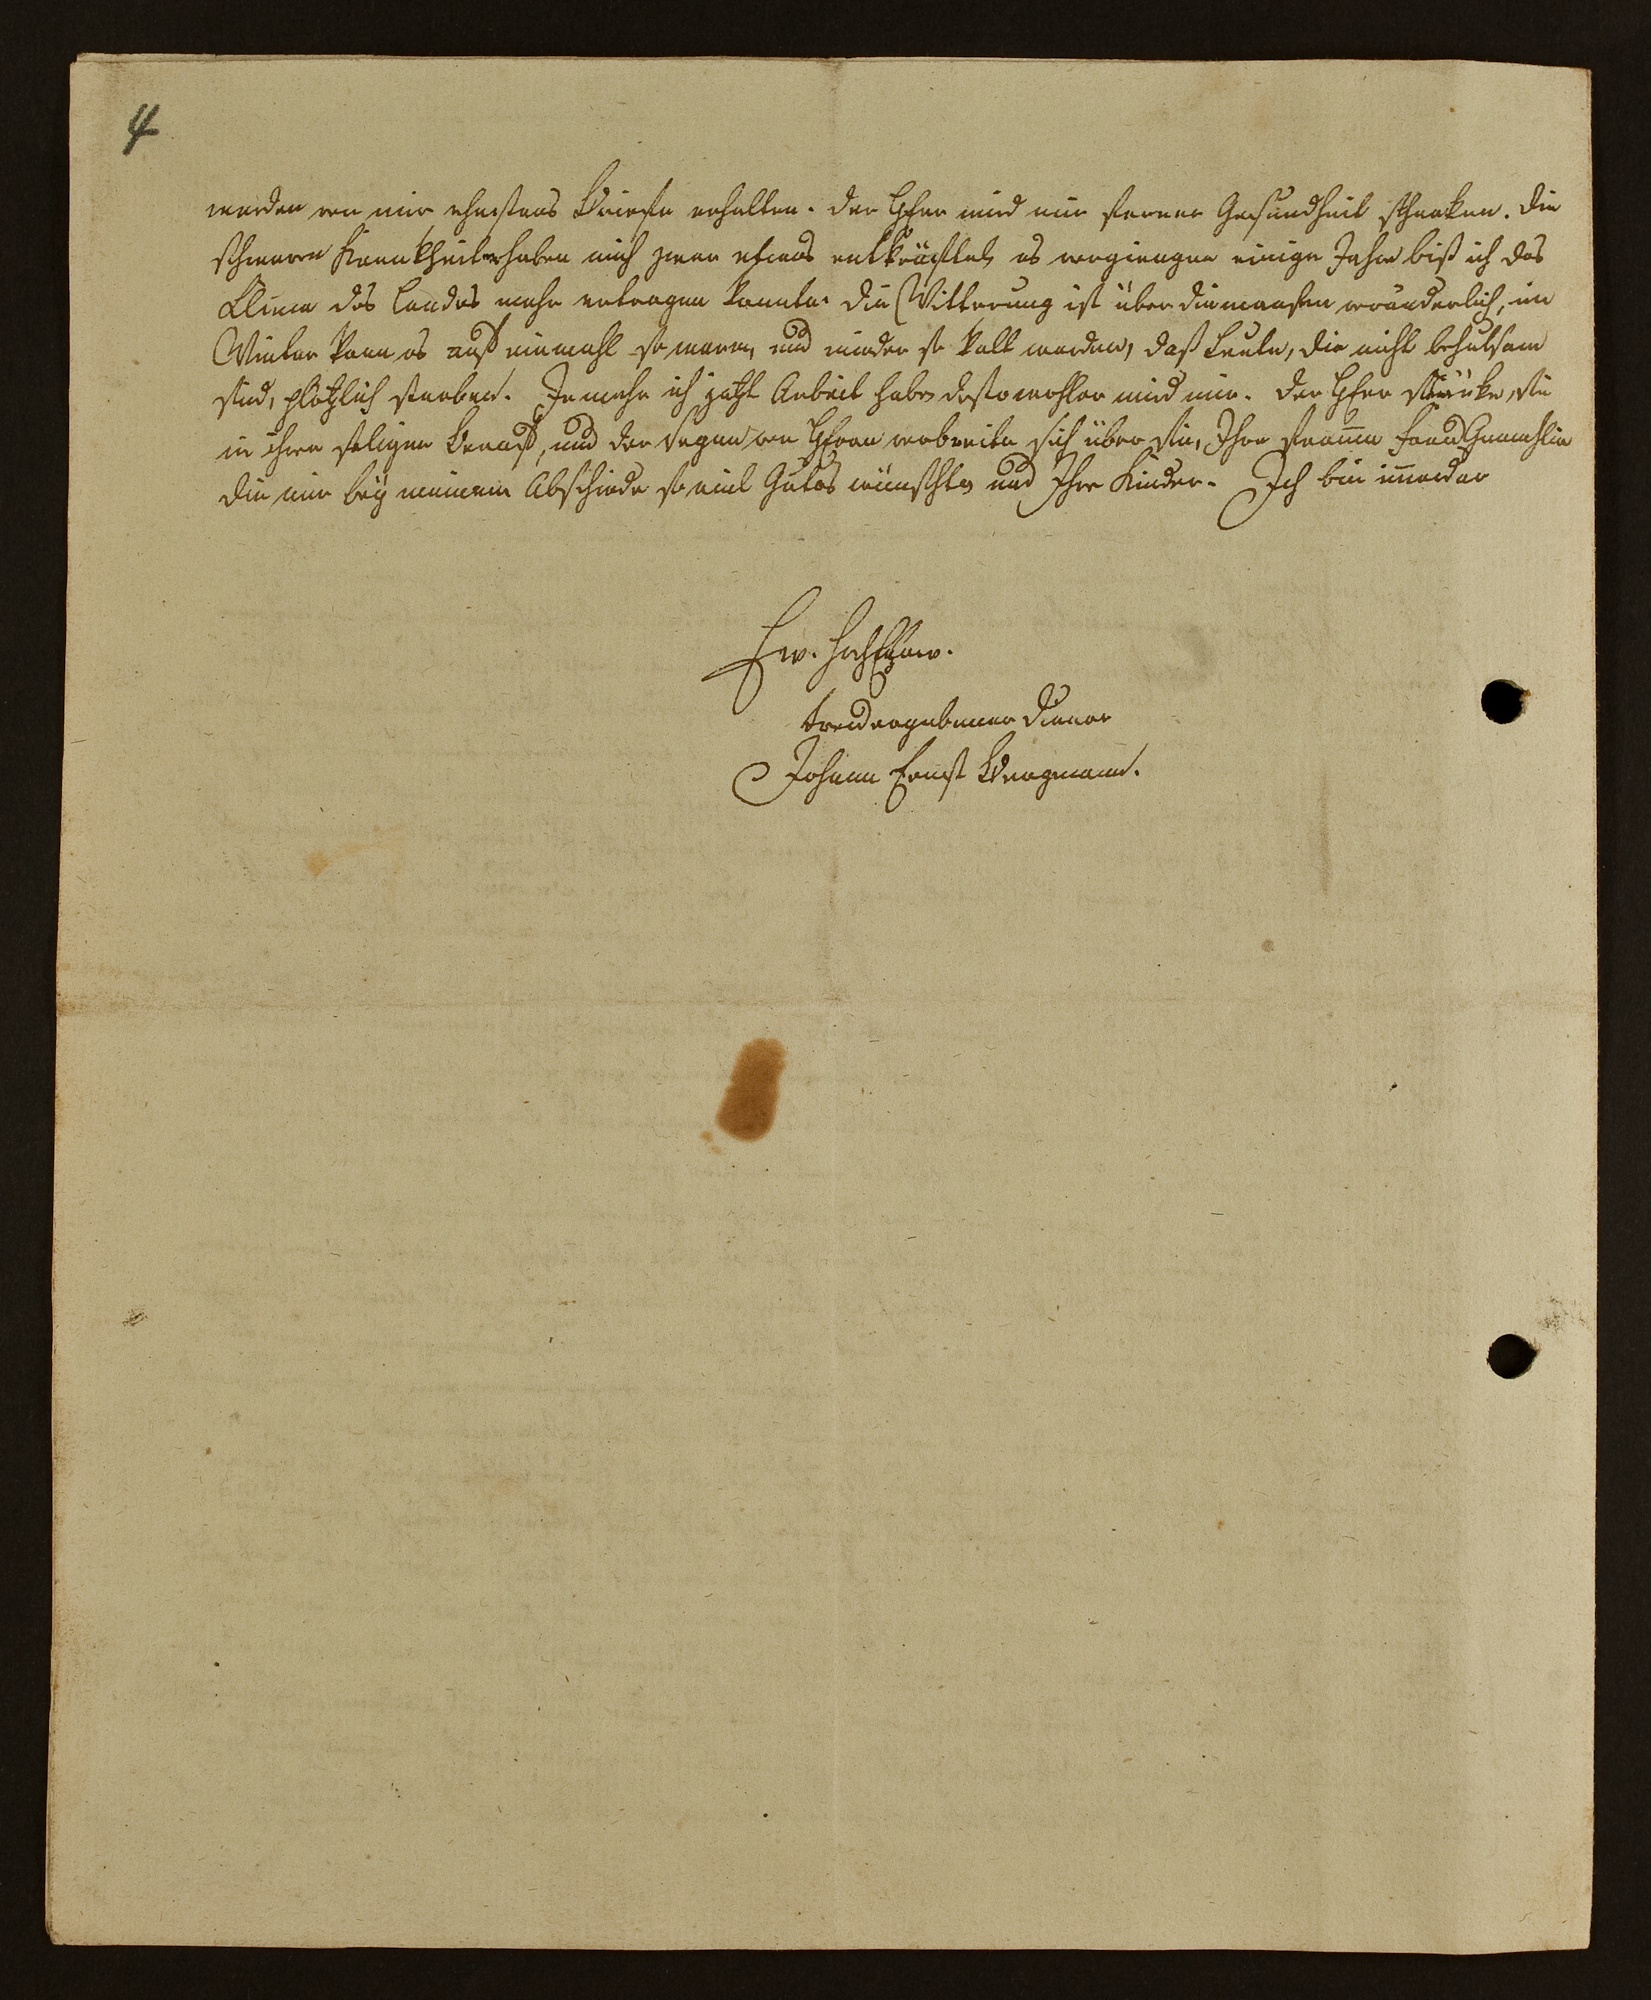 4
werden von mir ehestens Briefe erhalten. Der Herr wird mir ferner Gesundheit schenken. Die
schweren Krankheiten haben mich zwar etwas entkräftet, es vergiengen einige Jahre biß ich das
Clima des Landes mehr ertragen konnte. Die Witterung ist über die maaßen veränderlich, im
Winter kann es auf einmahl so warm, und wieder so kalt werden, daß Leute, die nicht behutsam
sind, plötzlich sterben. Je mehr ich jetzt Arbeit habe, desto wohler wird mir. Der Herr stärke Sie
in ihrem seligen Beruf, und der Segen des Herrn verbreite sich über Sie, Ihre fromme Frau Gemahlin
die mir bey meinem Abschiede so viel Gutes wünschte, und Ihre Kinder. Ich bin immerdar
Ew.
treuergebener Diener
Johann Ernst Bergmann.